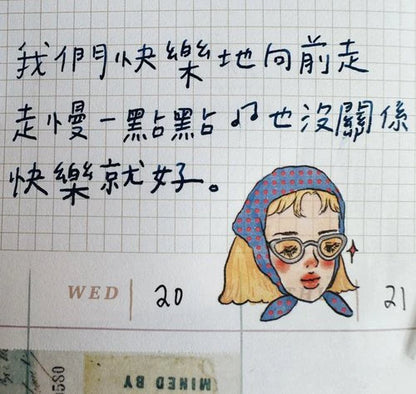 我們快樂地向前走
走慢一點點♫也沒關係
快樂就好。
WED 20 21
580 MINED BY